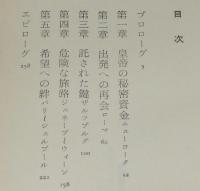 目次
プロローグ 5
第一章 皇帝の秘密資金 ニューヨーク 14
第二章 出発への再会 ローマ 62
第三章 託された鍵 ザルツブルグ 110
第四章 危険な旅路 ジュネーブ—ウィーン 158
第五章 希望への絆 パリ—シェルブール 221
エピローグ 258